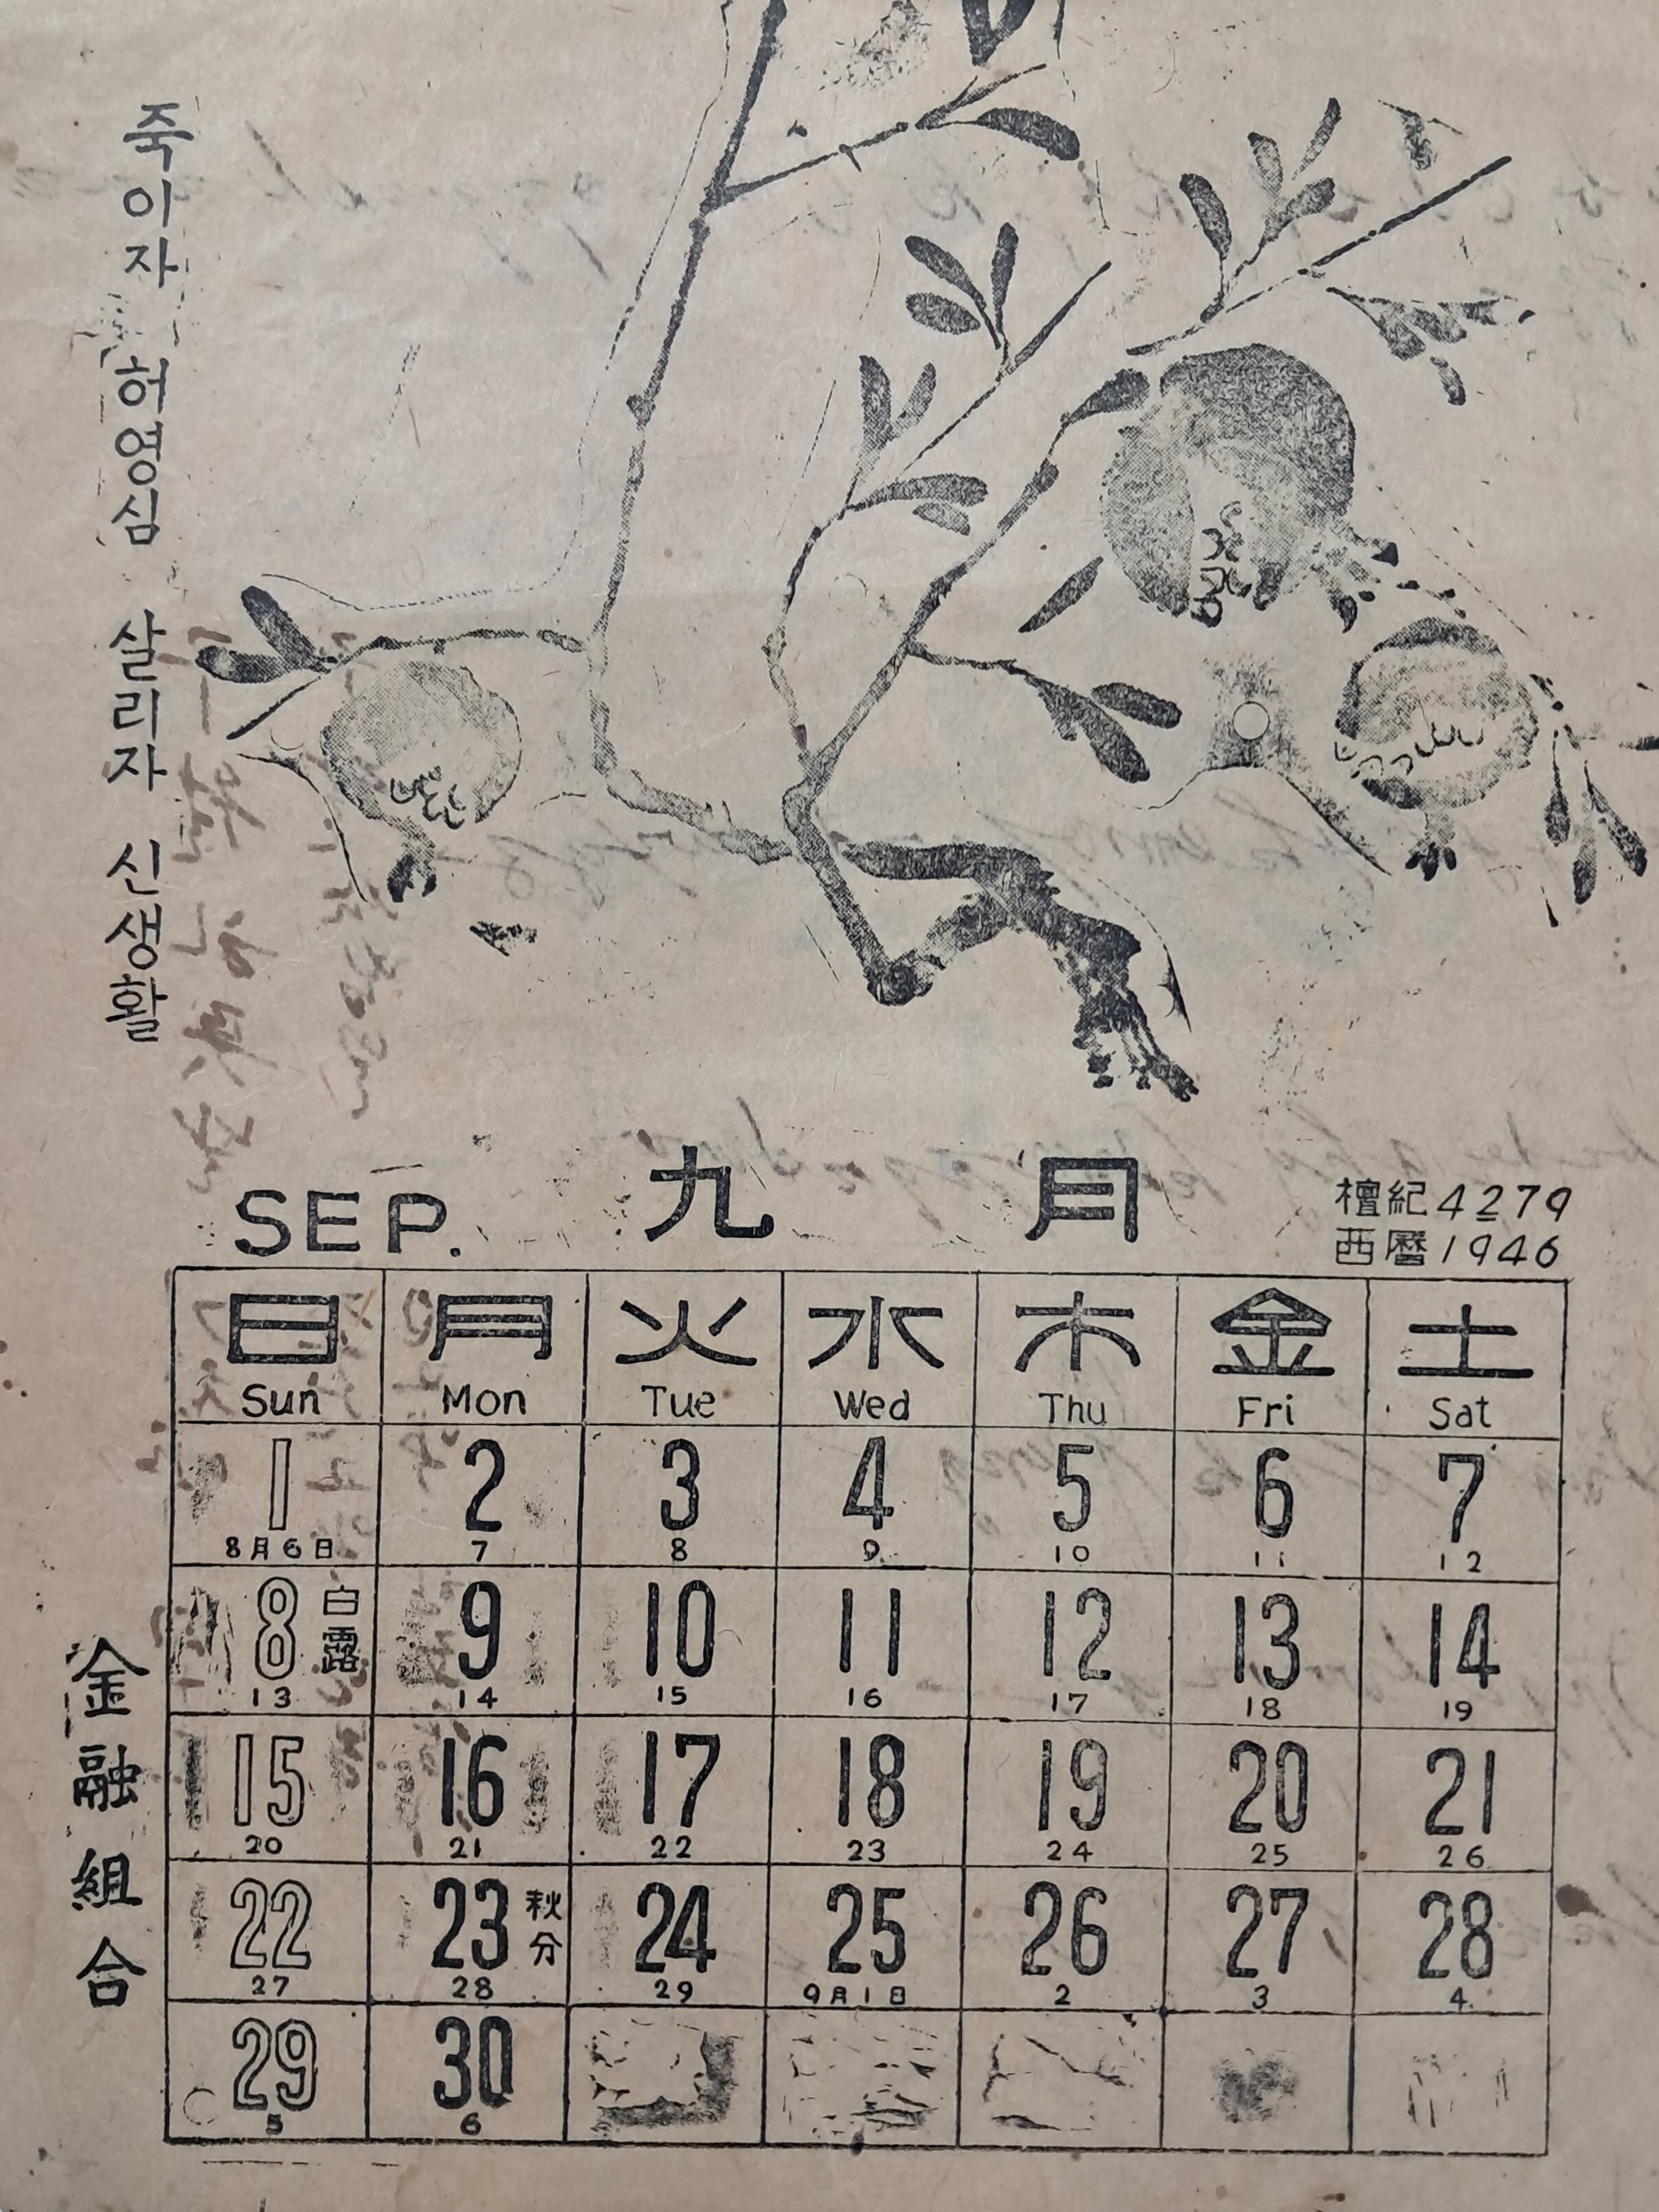 죽이자 허영심 살리자 신생활
SEP. 九 月
檀紀 4279
西曆 1946
日 月 火 水 木 金 土
Sun Mon Tue Wed Thu Fri Sat
1 2 3 4 5 6 7
8月6日 7 8 9 10 11 12
8 白露 9 10 11 12 13 14
13 14 15 16 17 18 19
15 16 17 18 19 20 21
20 21 22 23 24 25 26
22 23 秋分 24 25 26 27 28
27 28 29 9月1日 2 3 4
29 30
5 6
金融組合